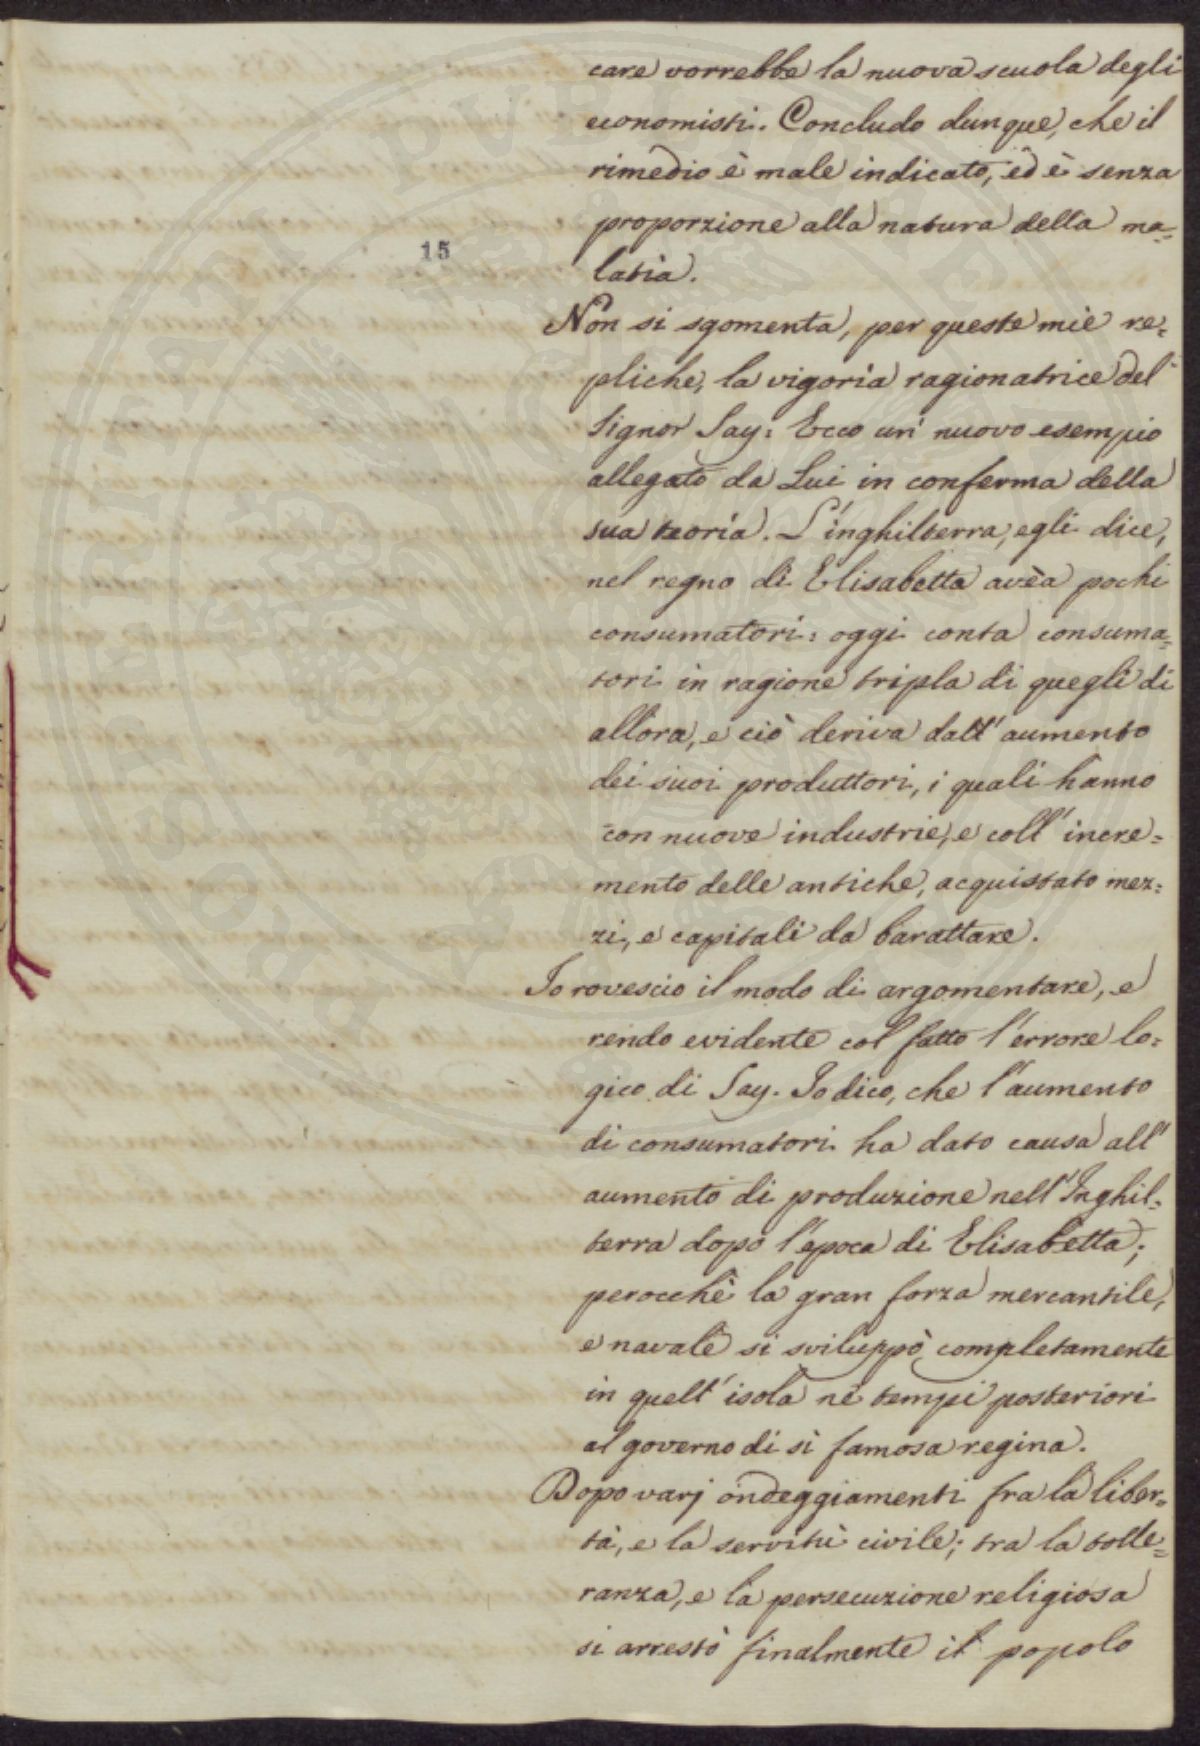 care vorrebbe la nuova scuola degli
economisti. Concludo dunque, che il
rimedio è male indicato, ed è senza
proporzione alla natura della ma=
latìa.
15
Non si sgomenta, per queste mie re=
pliche, la vigorìa ragionatrice del
Signor Say: Ecco un' nuovo esempio
allegato da Lui in conferma della
sua teorìa. L'inghilterra, egli dice,
nel regno di Elisabetta avèa pochi
consumatori: oggi conta consuma=
tori in ragione tripla di quegli di
allora, e ciò deriva dall'aumento
dei suoi produttori, i quali hanno
con nuove industrie, e coll'incre=
mento delle antiche, acquistato mez=
zi, e capitali da barattare.
Io rovescio il modo di argomentare, e
rendo evidente col fatto l'errore lo=
gico di Say. Io dico, che l'aumento
di consumatori ha dato causa all'
aumento di produzione nell'Inghil=
terra dopo l'epoca di Elisabetta;
perocchè la gran forza mercantile,
e navale si sviluppò completamente
in quell'isola ne tempi posteriori
al governo di sì famosa regina.
Dopo varj ondeggiamenti fra la liber=
tà, e la servitù civile; tra la tolle=
ranza, e la persecuzione religiosa
si arrestò finalmente il popolo